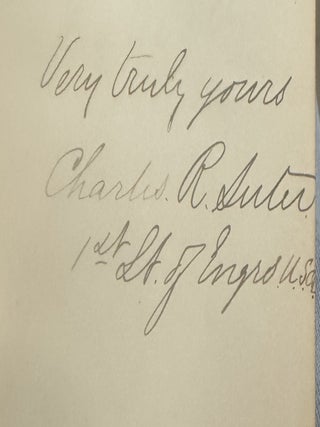 Very truly yours
Charles. R. Suter.
1st Lt. of Engrs. U.S.A.